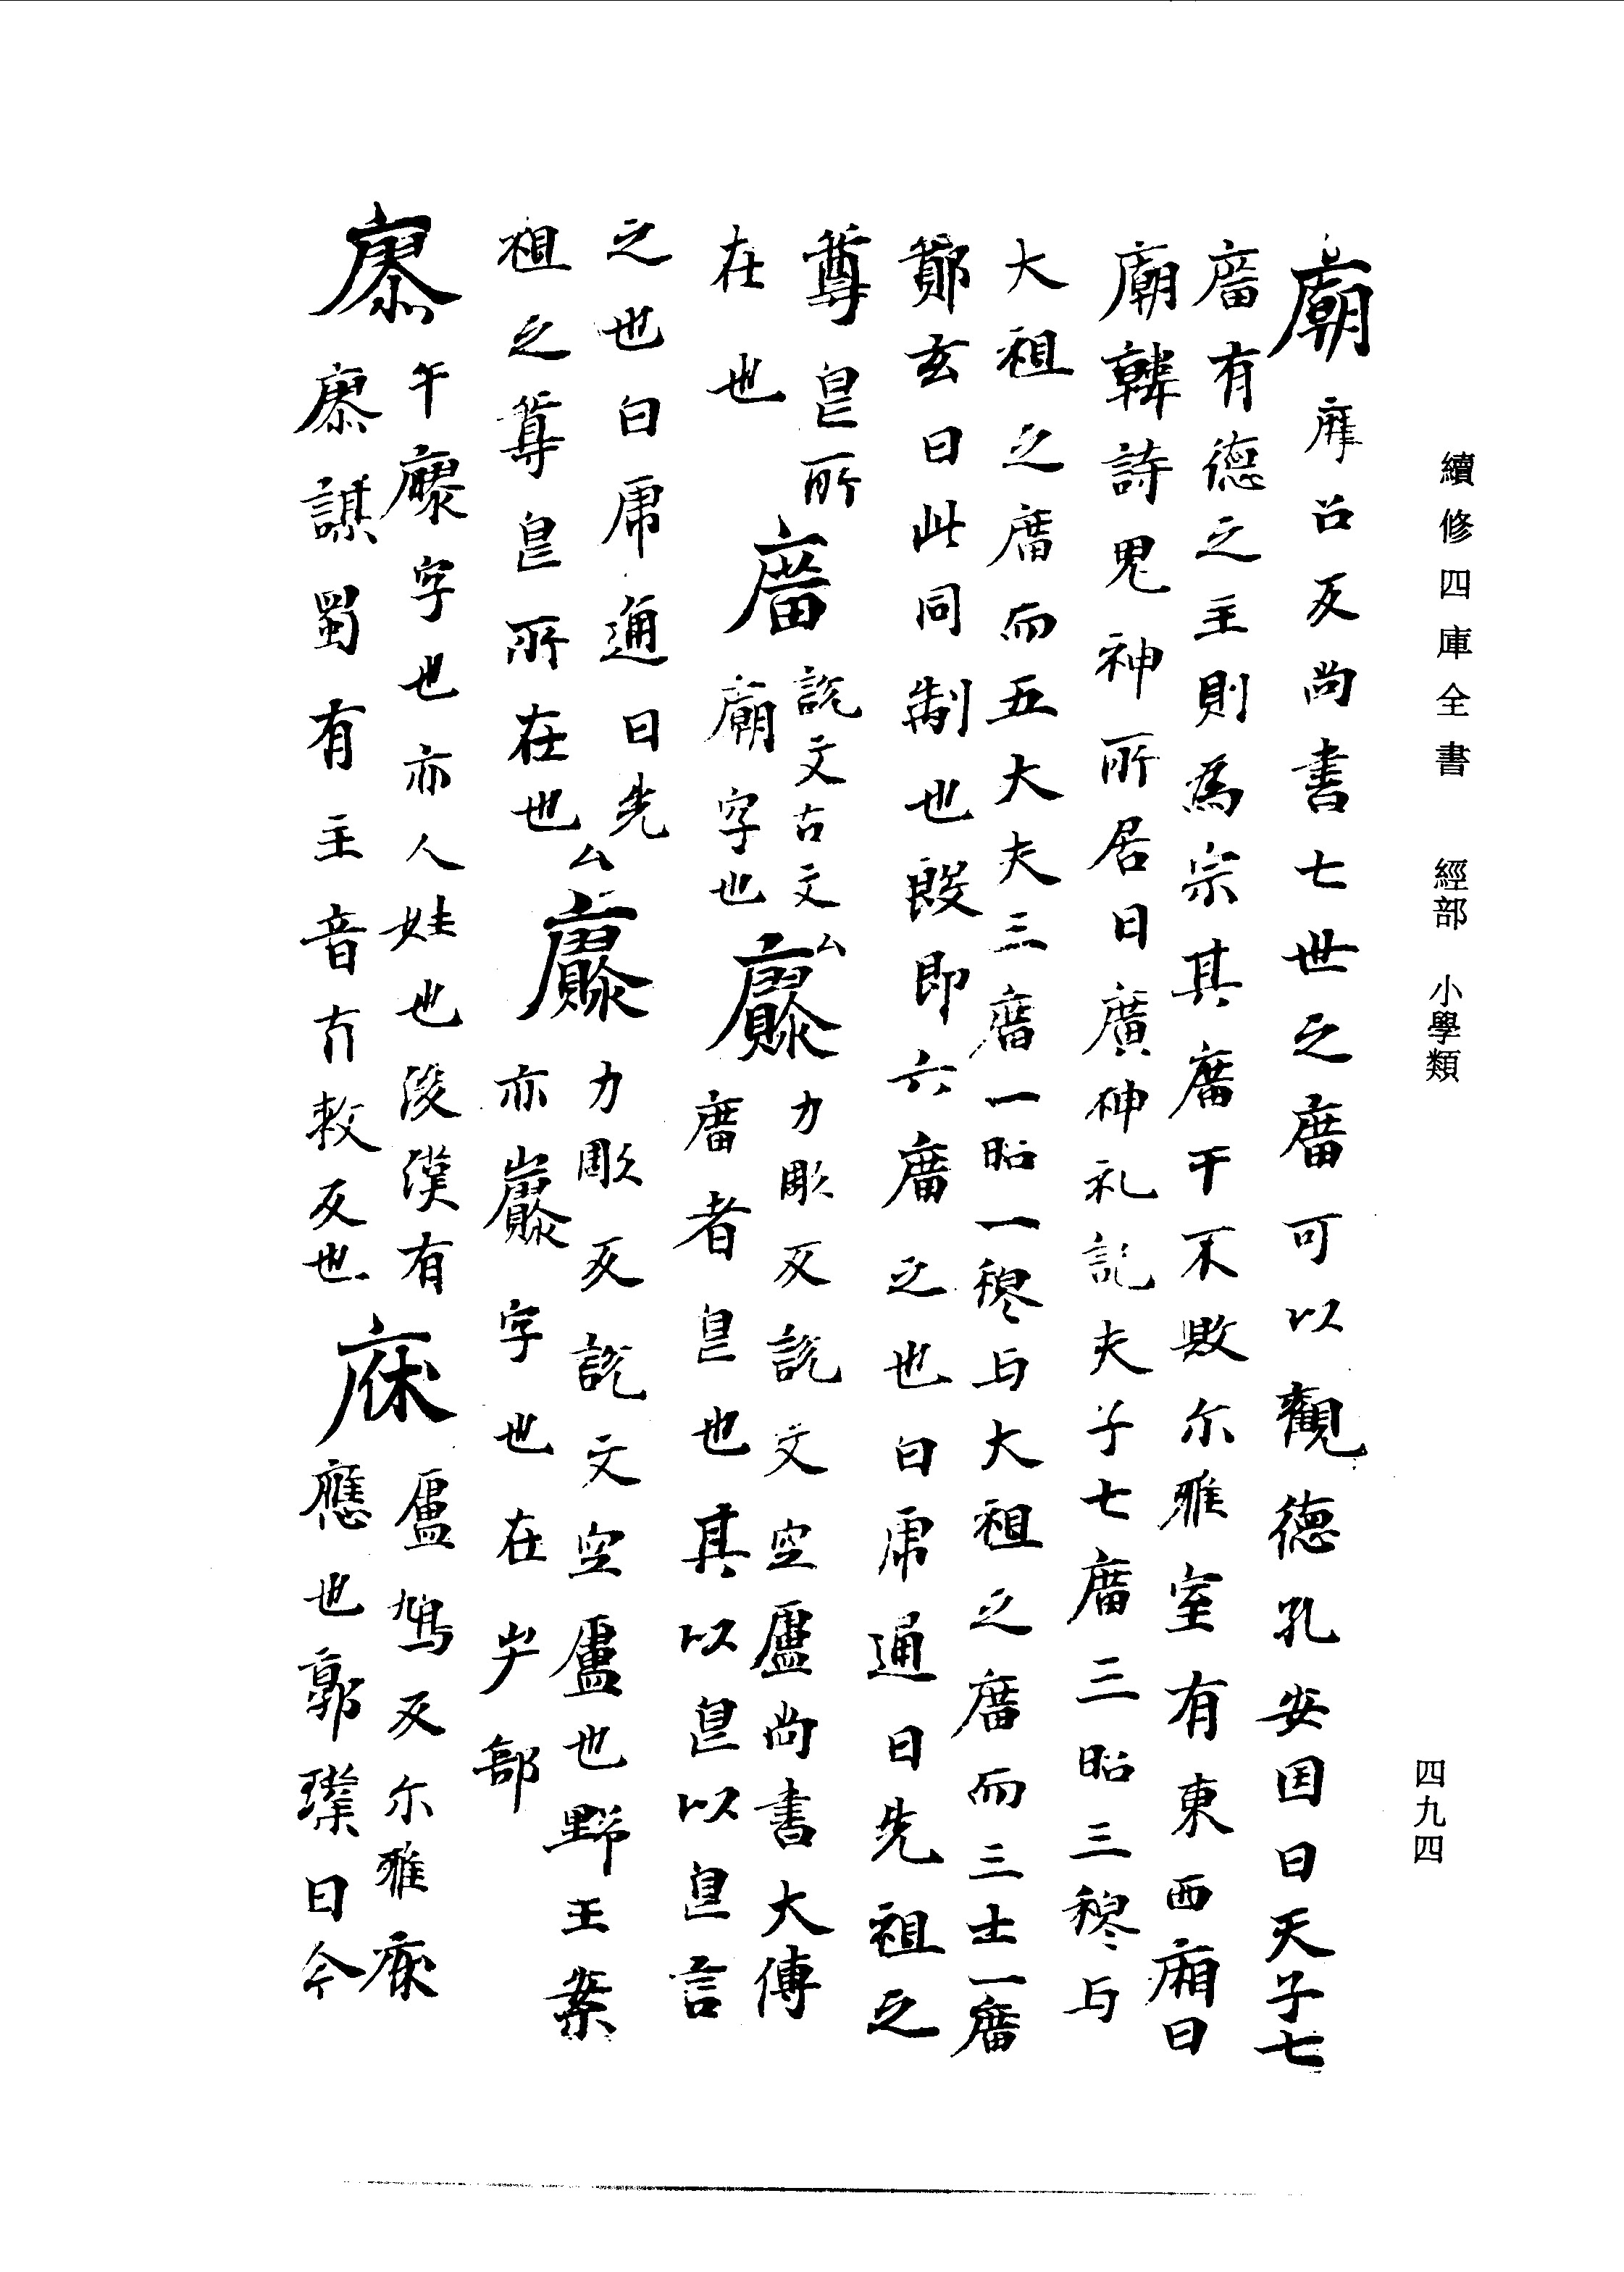 續修四庫全書 經部 小學類
四九四
廟 靡召反尚書七世之庿可以觀德孔安囯曰天子七
庿有德之主則為宗其庿干不毀尒雅室有東西廂曰
廟韓詩鬼神所居曰廣神礼記夫子七庿三昭三穆与
大祖之庿而五大夫三庿一昭一穆与大祖之庿而三士一庿
鄭玄曰此同制也殷即六庿之也白虎通曰先祖之
尊皃所
在也
庿 說文古文
廟字也
廫 力彫反說文空廬尚書大傳
庿者皃也其以皃以皃言
之也白虎通曰先
祖之尊皃所在也
廫 力彫反說文空廬也野王案
亦巖字也在屵部
廖 午廫字也亦人姓也後漢有
廖諶蜀有主音方救反也
庥 虛鳩反尒雅庥
應也郭璞曰今